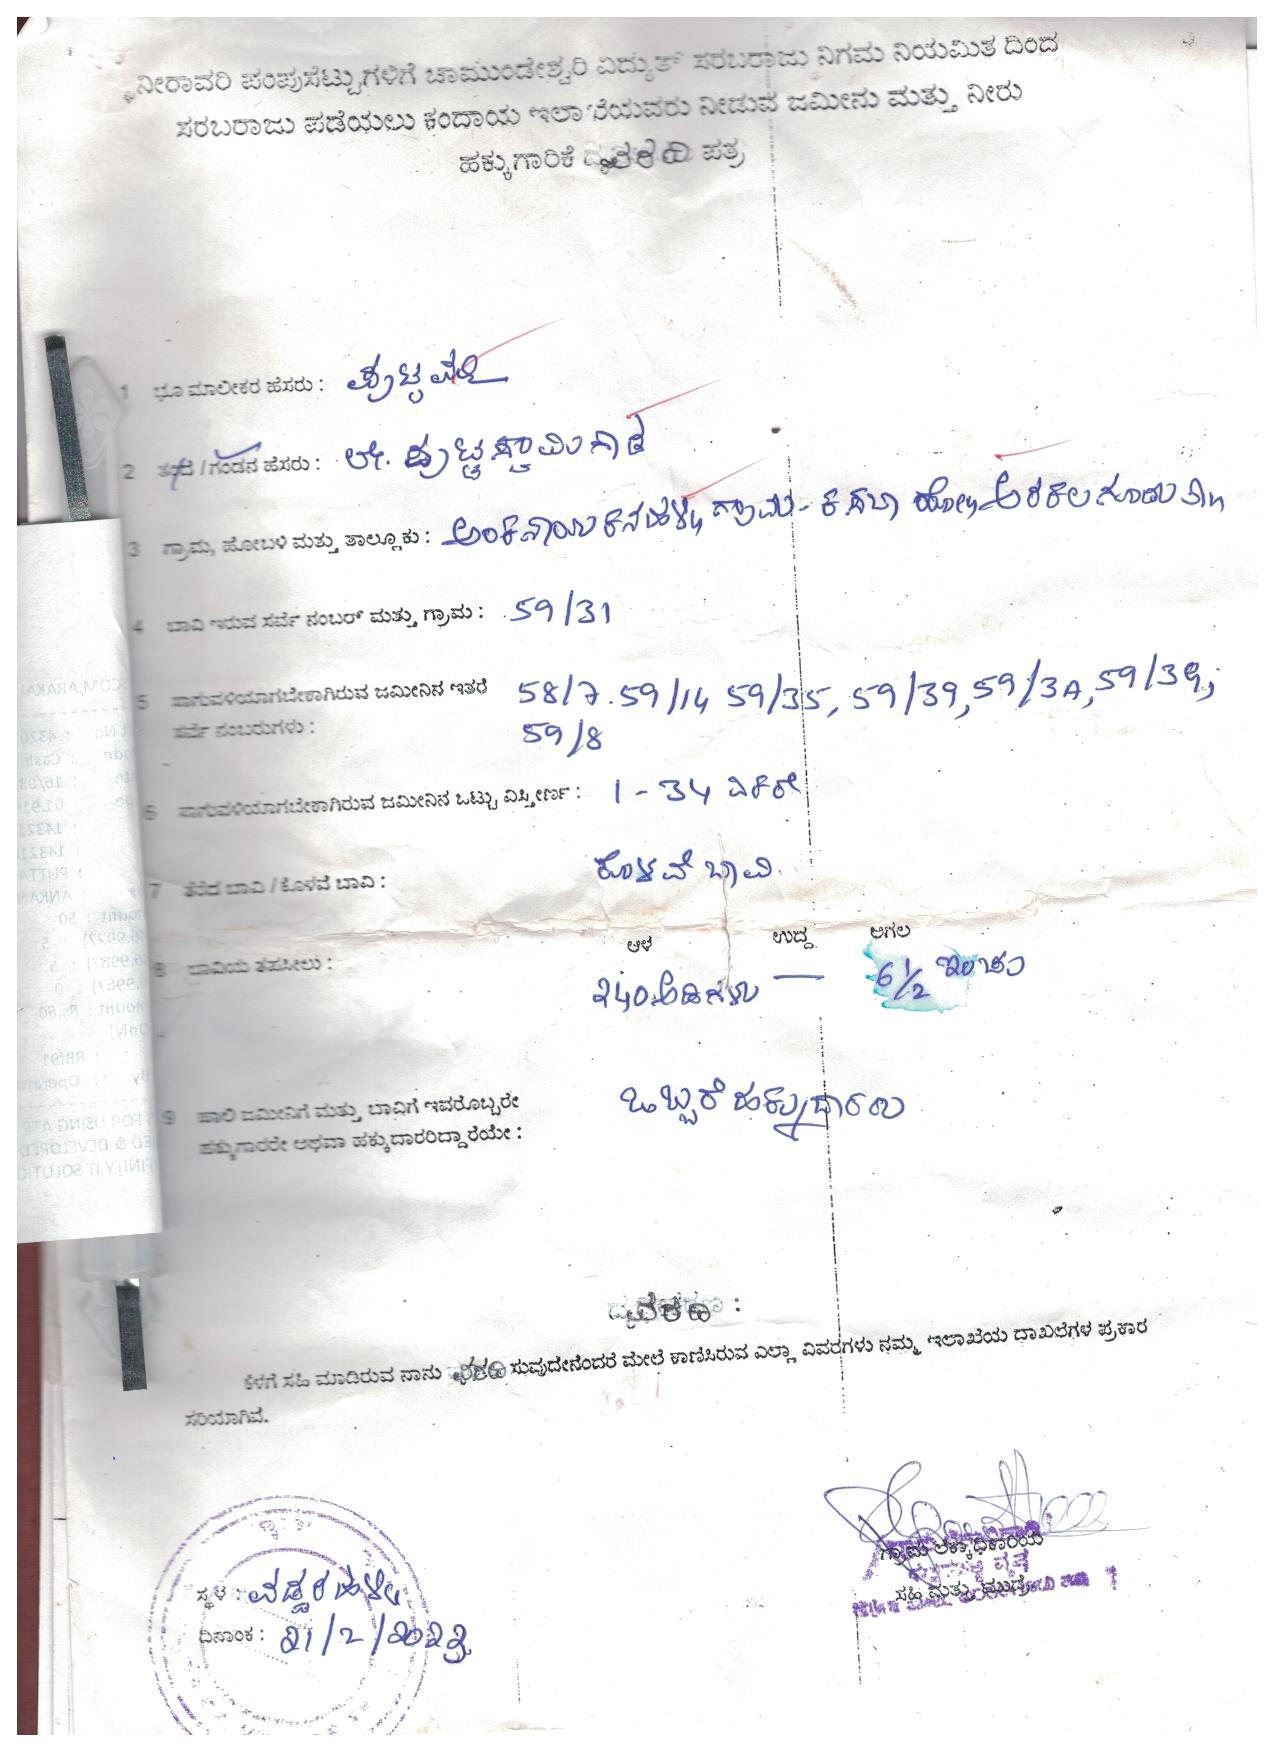 ನೀರಾವರಿ ಪಂಪುಸೆಟ್ಟುಗಳಿಗೆ ಚಾಮುಂಡೇಶ್ವರಿ ವಿದ್ಯುತ್ ಸರಬರಾಜು ನಿಗಮ ನಿಯಮಿತ ದಿಂದ
ಸರಬರಾಜು ಪಡೆಯಲು ಕಂದಾಯ ಇಲಾಖೆಯವರು ನೀಡುವ ಜಮೀನು ಮತ್ತು ನೀರು
ಹಕ್ಕುಗಾರಿಕೆ ಪತ್ರ
1 ಭೂ ಮಾಲೀಕರ ಹೆಸರು :
2 ತಂದೆ / ಗಂಡನ ಹೆಸರು : ಲೇ. ಪುಟ್ಟಸ್ವಾಮಿಗೌಡ
3 ಗ್ರಾಮ, ಹೋಬಳಿ ಮತ್ತು ತಾಲ್ಲೂಕು : ಅಂಕನಾಯಕನಹಳ್ಳಿ ಗ್ರಾಮ - ಕಸಬಾ ಹೋ, ಅರಕಲಗೂಡು ತಾ
4 ಬಾವಿ ಇರುವ ಸರ್ವೆ ನಂಬರ್ ಮತ್ತು ಗ್ರಾಮ : 59/31
5 ಸಾಗುವಳಿಯಾಗಬೇಕಾಗಿರುವ ಜಮೀನಿನ ಇತರೆ 58/7. 59/14 59/35, 59/39, 59/3A,
ಸರ್ವೆ ನಂಬರುಗಳು : 59/8
6 ಸಾಗುವಳಿಯಾಗಬೇಕಾಗಿರುವ ಜಮೀನಿನ ಒಟ್ಟು ವಿಸ್ತೀರ್ಣ : 1 - 34 ಎಕರೇ
7 ತೆರೆದ ಬಾವಿ / ಕೊಳವೆ ಬಾವಿ : ಕೊಳವೆ ಬಾವಿ.
ಆಳ ಉದ್ದ ಅಗಲ
8 ಬಾವಿಯ ತಪಸೀಲು : 240 ಅಡಿಗಳು — 6 1/2 ಇಂಚು
9 ಹಾಲಿ ಜಮೀನಿಗೆ ಮತ್ತು ಬಾವಿಗೆ ಇವರೊಬ್ಬರೇ ಒಬ್ಬರೆ ಹಕ್ಕುದಾರರು
ಹಕ್ಕುಗಾರರೇ ಅಥವಾ ಹಕ್ಕುದಾರರಿದ್ದಾರೆಯೇ :
ಕೆಳಗೆ ಸಹಿ ಮಾಡಿರುವ ನಾನು ಸುವುದೇನೆಂದರೆ ಮೇಲೆ ಕಾಣಿಸಿರುವ ಎಲ್ಲಾ ವಿವರಗಳು ನಮ್ಮ ಇಲಾಖೆಯ ದಾಖಲೆಗಳ ಪ್ರಕಾರ
ಸರಿಯಾಗಿವೆ.
ಗ್ರಾಮ ಲೆಕ್ಕಾಧಿಕಾರಿಯ
ಸಹಿ ಮತ್ತು ಮುದ್ರೆ
ಸ್ಥಳ : ವಡ್ಡರಹಳ್ಳಿ
ದಿನಾಂಕ : 21/2/2023